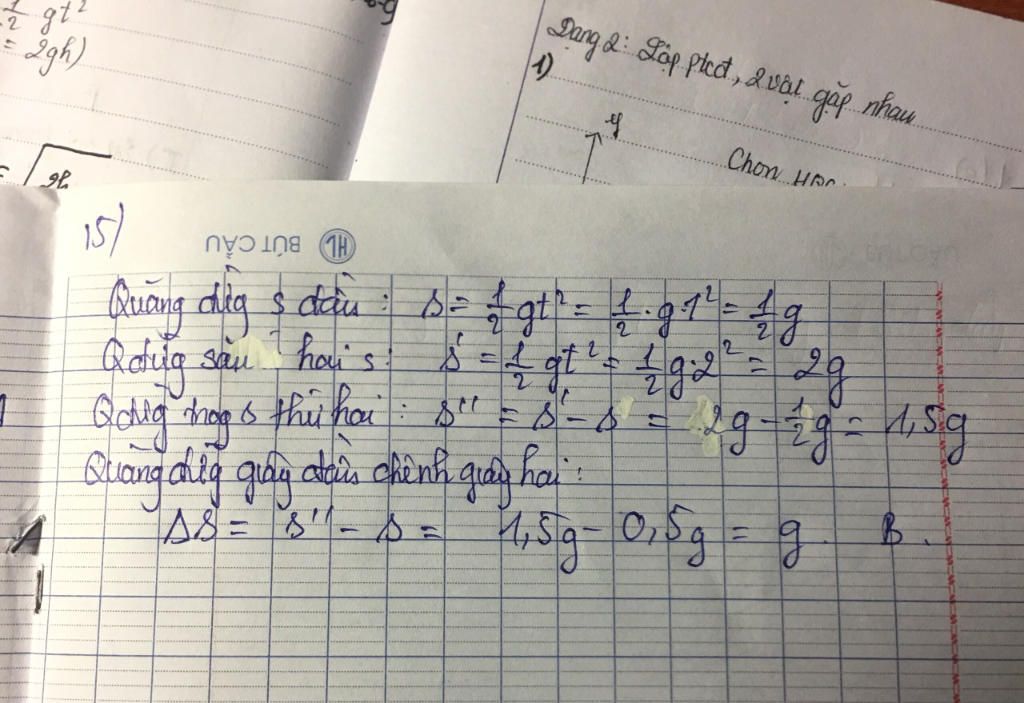 1/2 gt²
= 2gh)
Dạng 2: Lập ptcđ, 2 vật gặp nhau
1)
y
Chọn
15)
HL BÚT CẦU
Quãng đường s đầu: s = 1/2 gt² = 1/2 · g · 1² = 1/2 g
Qđường sau hai s: s' = 1/2 gt² = 1/2 g · 2² = 2g
Qđường trog s thứ hai: s'' = s' - s = 2g - 1/2 g = 1,5g
Quãng đường giây đầu chênh giây hai:
ΔS = s'' - s = 1,5g - 0,5g = g. B.